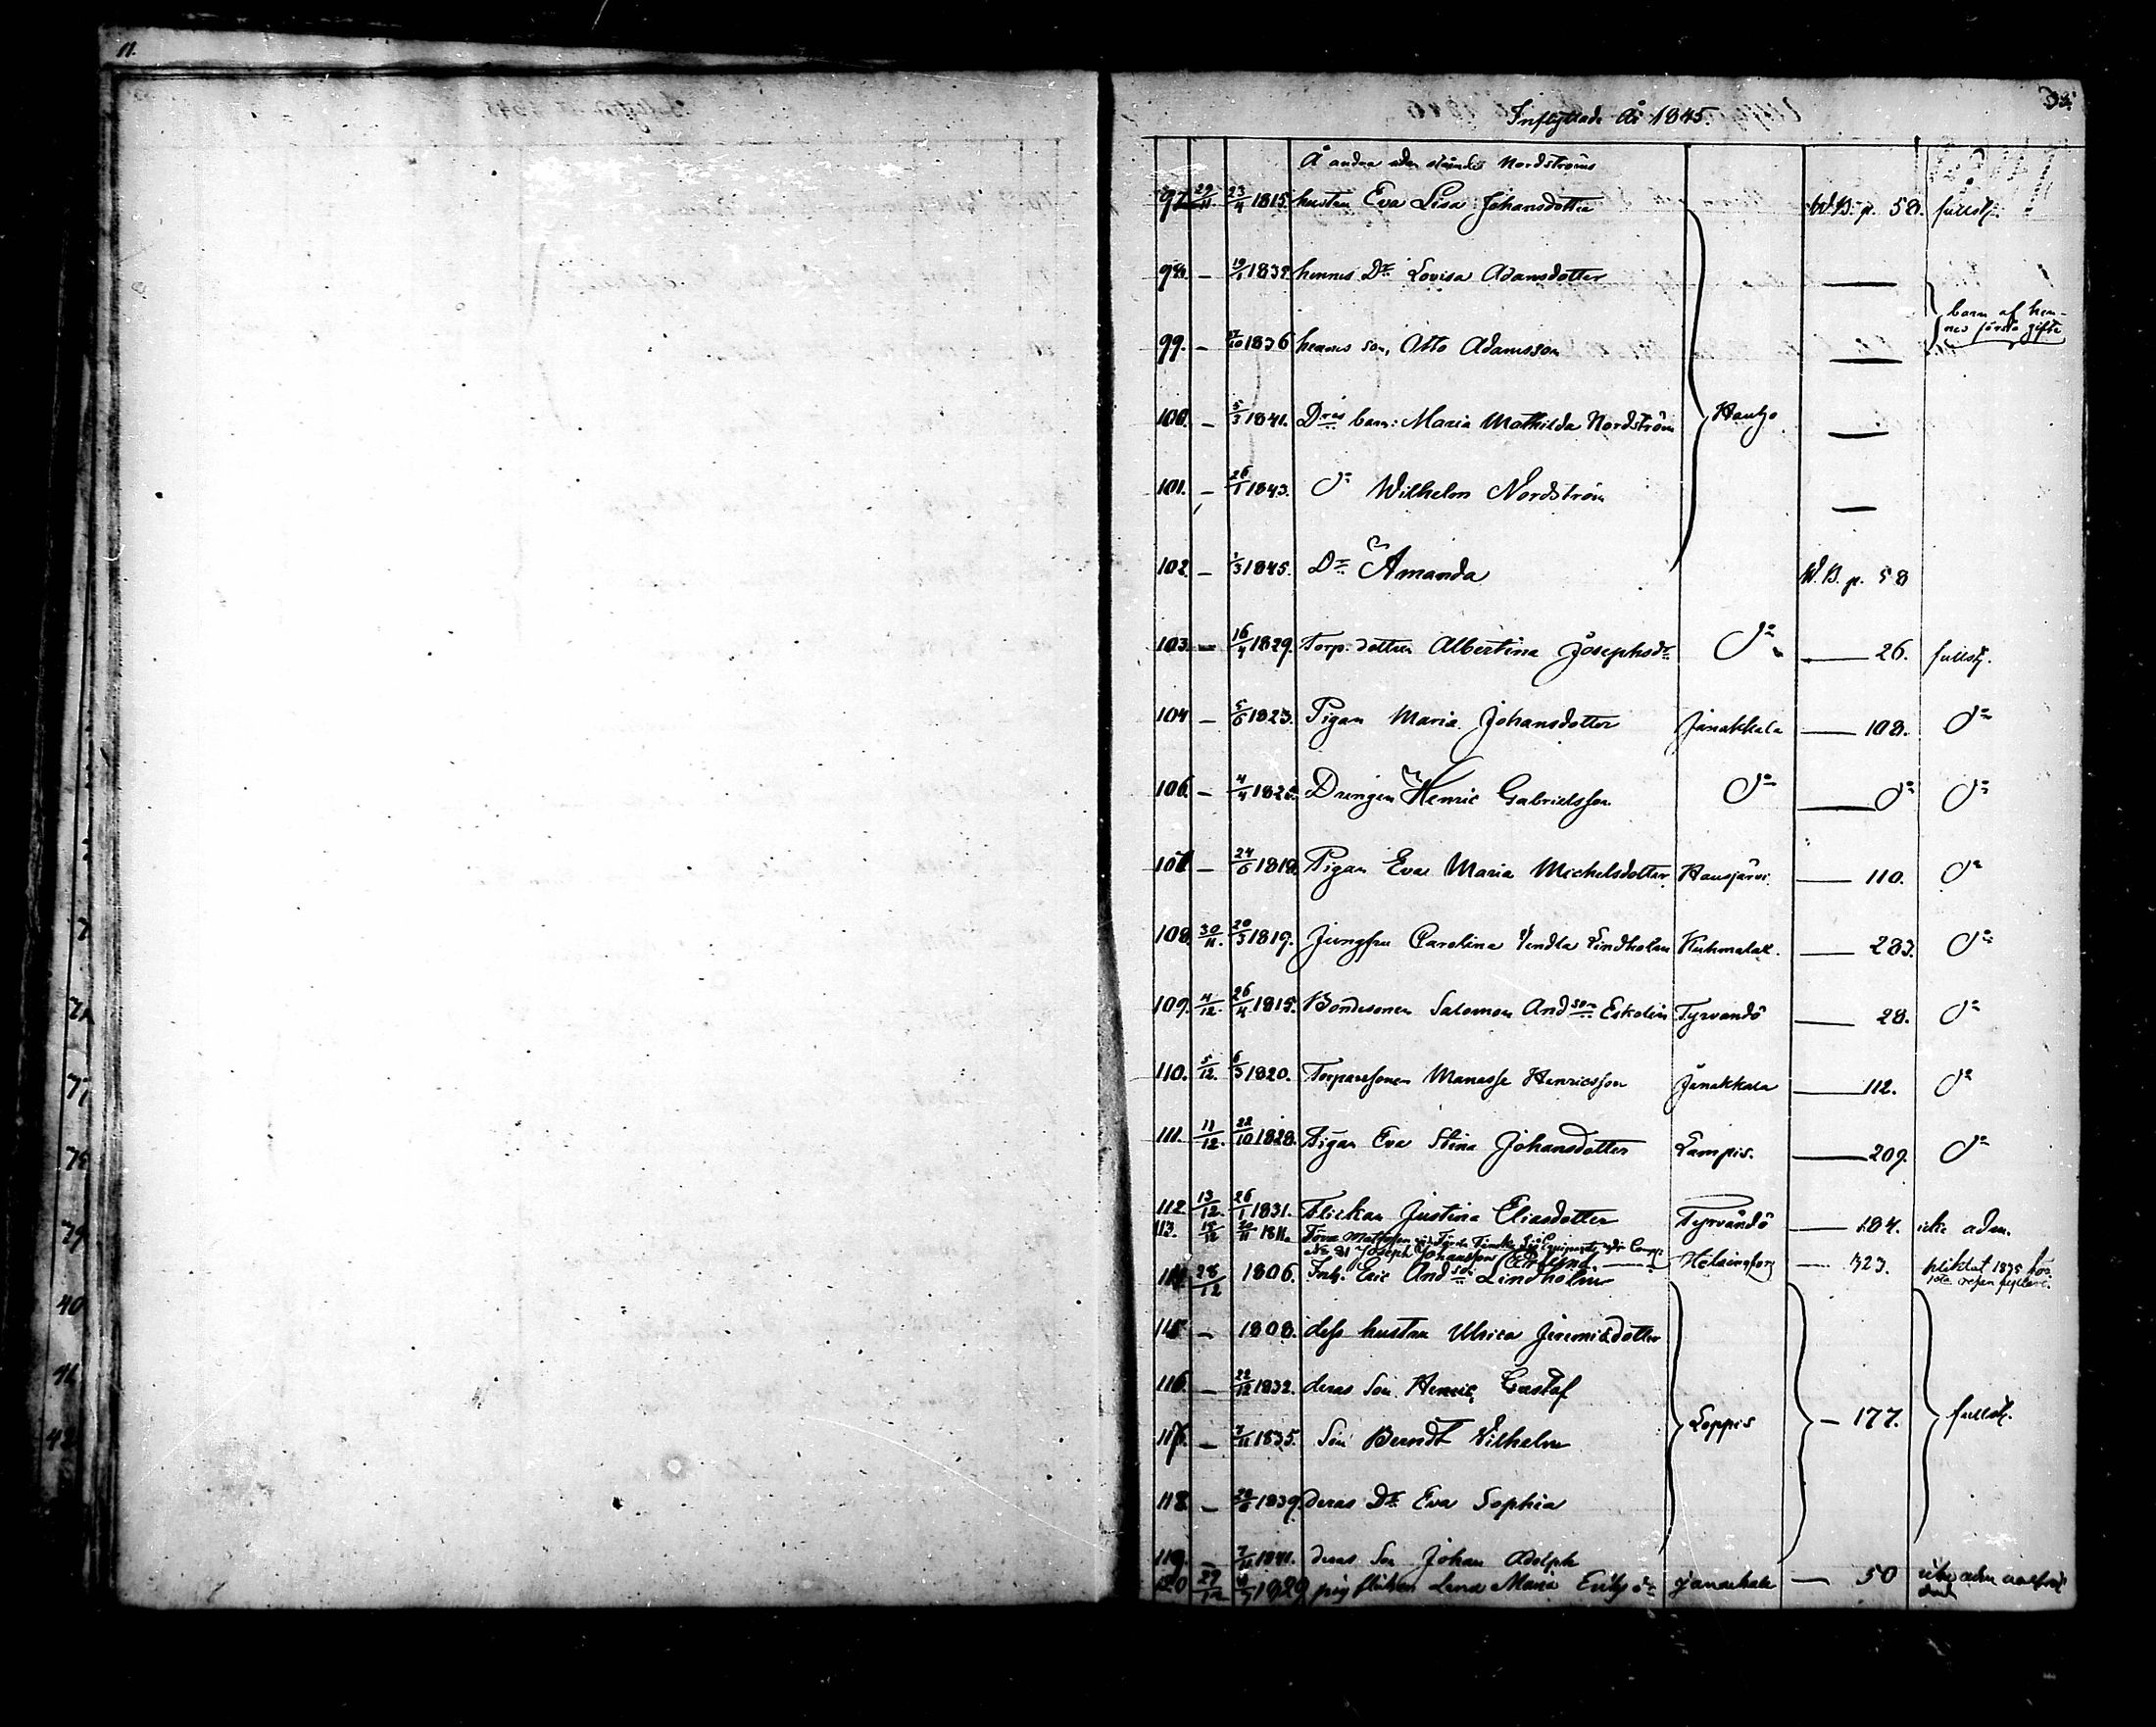 11.
Inflyttade År 1845.
Å andra sidan stående Nordströms
97. 29/11. 23/4 1815. hustru Eva Lisa Johansdotter W.B. p. 58. fullst.
98. — 19/1 1832. hennes Dr Lovisa Adamsdotter —
barn af hennes första gifte
99. — /10 1836 hennes son, Otto Adamsson —
100. — 5/3 1841. Dras barn: Maria Mathilda Nordström Hauho —
101. — 26/1 1843. Do Wilhelm Nordström —
102. — 1/3 1845. Dr Amanda W.B. p. 58
103. — 16/4 1829. Torp. dottren Albertina Josephsdr Do — 26. fullst.
104 — 5/6 1823. Pigan Maria Johansdotter Janakkala — 108. Do
106. — 4/4 1825. Drengen Henric Gabrielsson Do — Do Do
107 — 24/6 1818. Pigan Eva Maria Michelsdotter Hausjärvi. — 110. Do
108. 30/11. 20/3 1819. Jungfru Carolina Vendla Lindholm Kuhmalax. — 283. Do
109. 4/12. 26/4 1815. Bondesonen Salomon Andson Eskolin Tyrvändö — 28. Do
110. 5/12. 6/3 1820. Torparesonen Manasse Henricsson Janakkala — 112. Do
111. 11/12. 22/10 1828. Pigan Eva Stina Johansdotter Lampis. — 209. Do
112. 13/12. 26/1 1831. Flickan Justina Eliasdotter Tyrvändö — 184. icke adm.
113. 18/12 /11 181 Finska Sjö Equipaget
No 31 Joseph Johansson Helsingfors — 323. pliktat 1835
114 28/12 1806. Inh. Eric Andson Lindholm
115 — 1808. dess hustru Ulrica Jeremiædotter
116. — 22/12 1832. deras Son Henric Gustaf
Loppis — 177. fullst.
117. — 7/11 1835. Son Berndt Vilhelm
118. — 28/8 1839. deras Dr Eva Sophia
119. — 7/11 1841. deras Son Johan Adolph
120 29/12 1829 pig flickan Lena Maria Janakkala — 50 icke adm